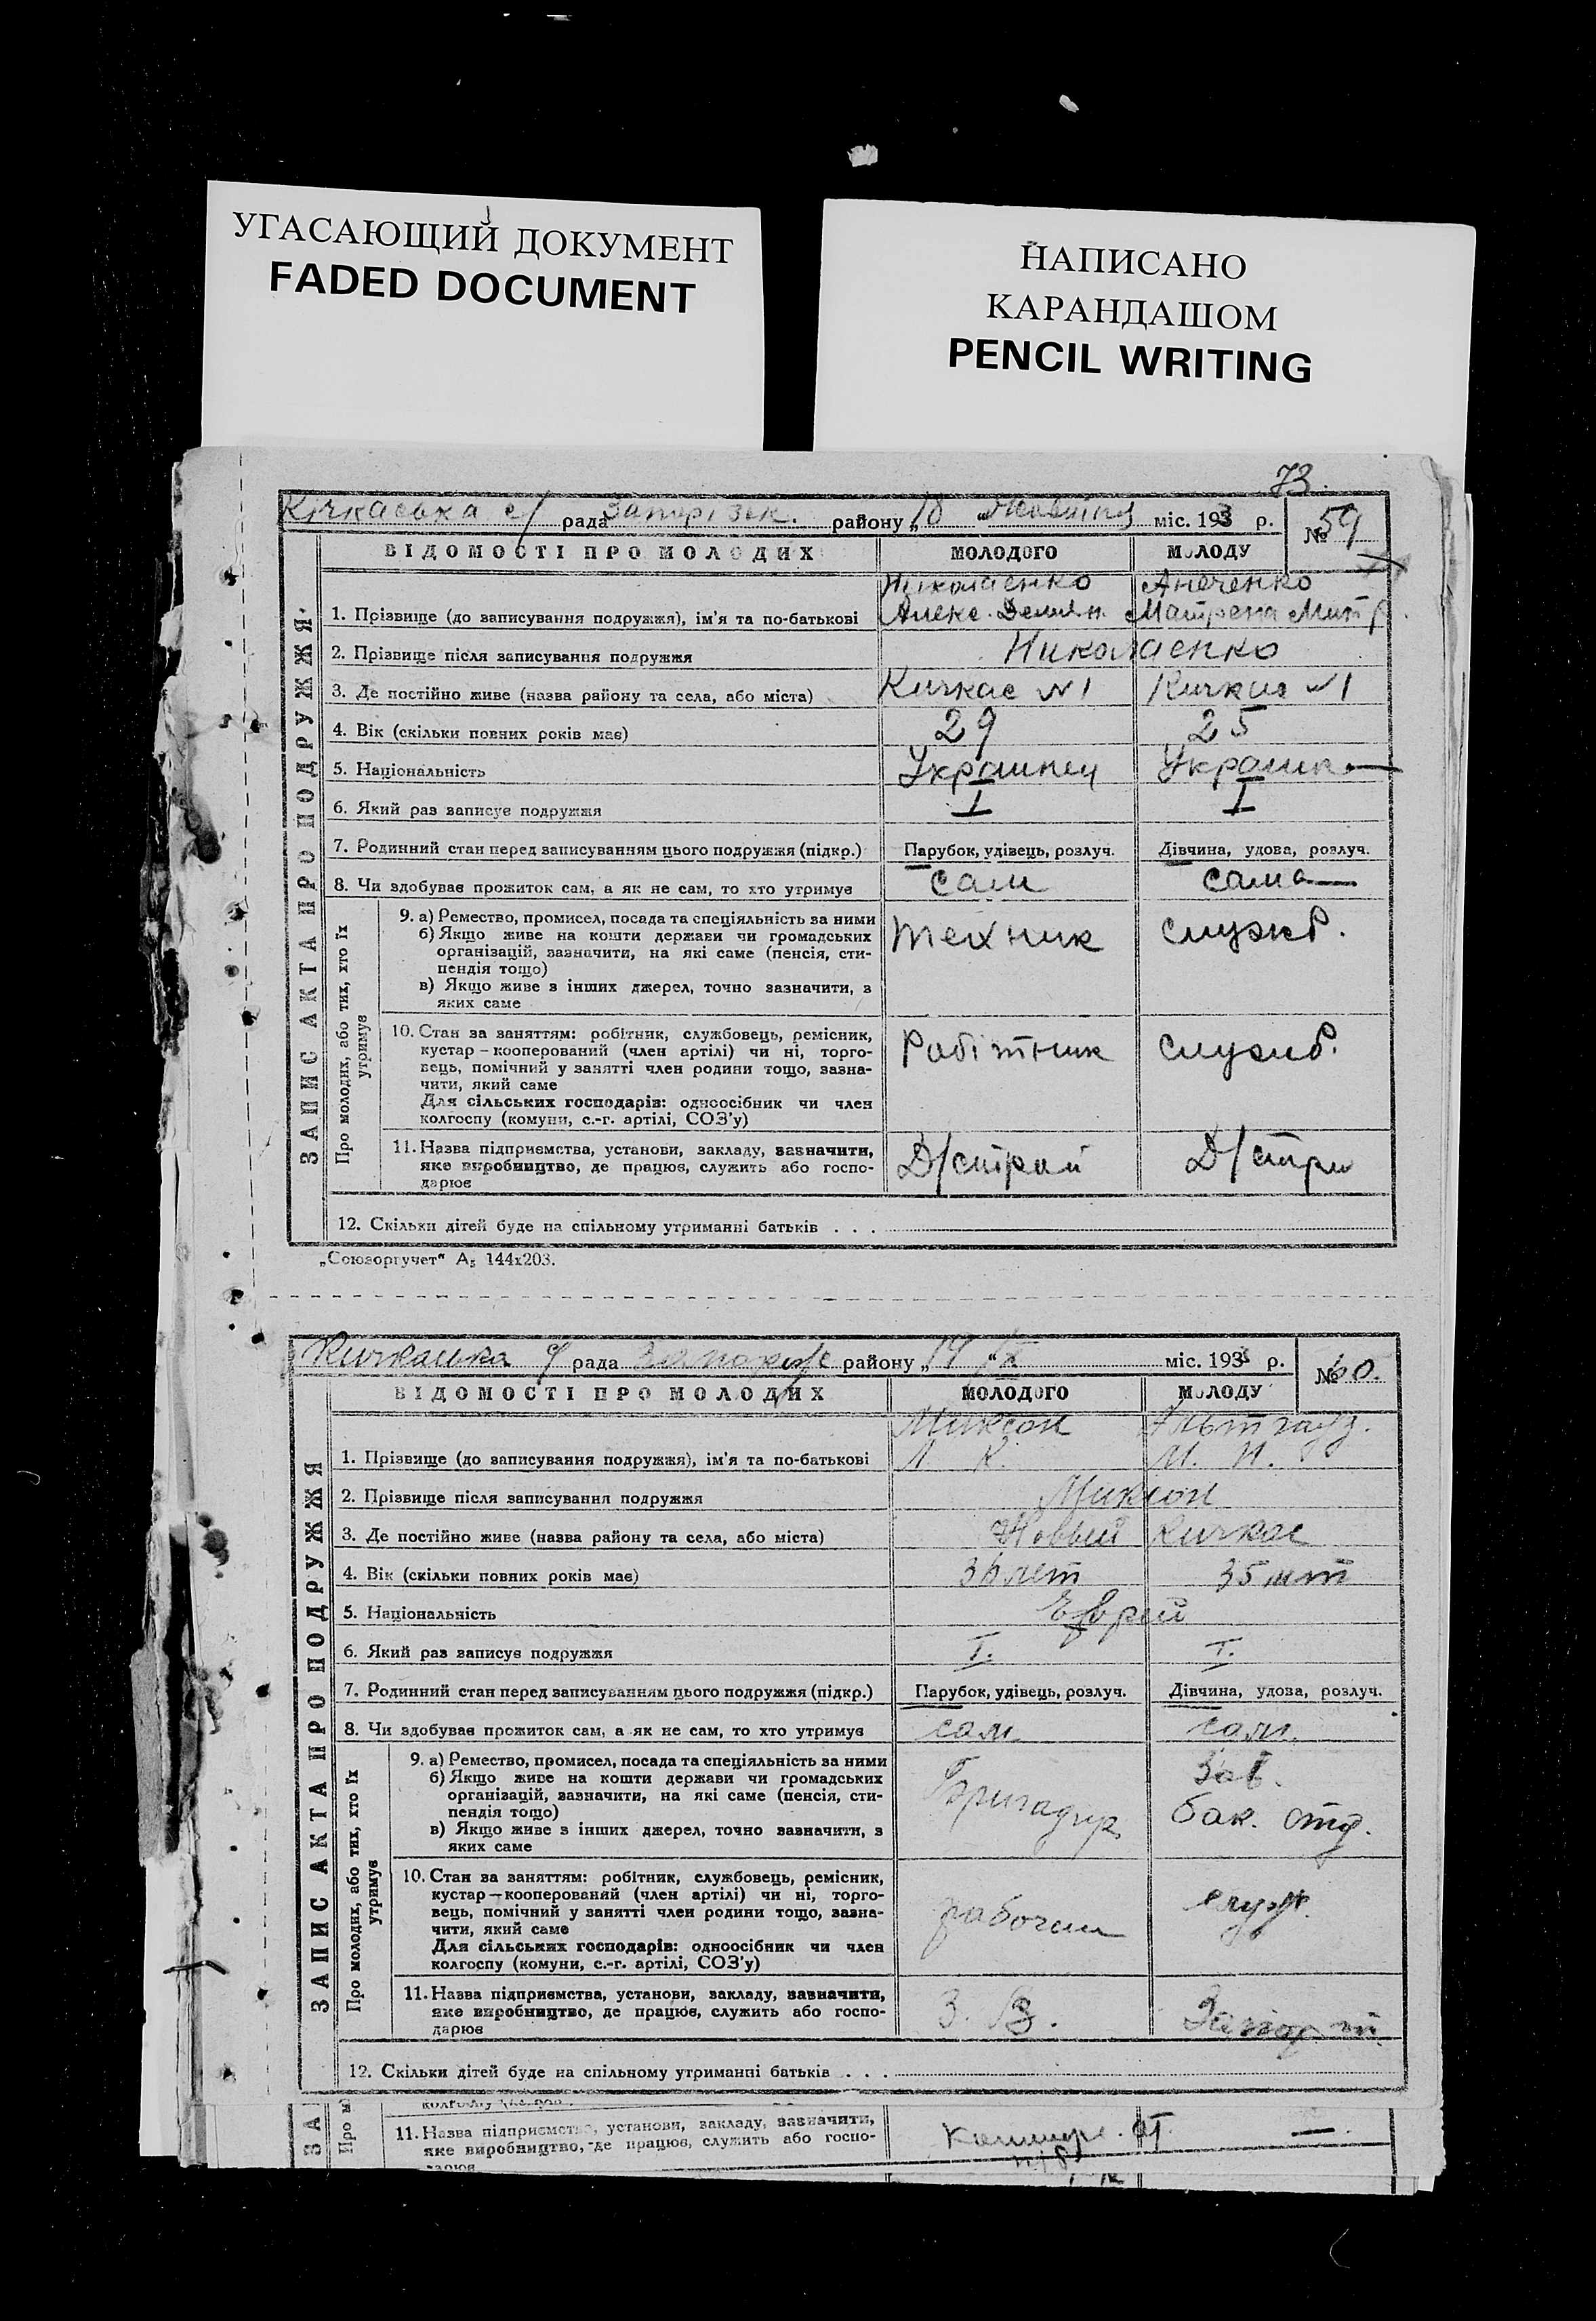 УГАСАЮЩИЙ ДОКУМЕНТ
FADED DOCUMENT
НАПИСАНО
КАРАНДАШОМ
PENCIL WRITING
73.
Кічкаська с/ рада Запорізьк. району „18 “ Жовтня міс. 1933 р. № 59
ВІДОМОСТІ ПРО МОЛОДИХ МОЛОДОГО МОЛОДУ
ЗАПИС АКТА ПРО ПОДРУЖЖЯ.
Николаенко
1. Прізвище (до записування подружжя), ім’я та по-батькові Алекс. Демян. Матрена Митр.
2. Прізвище після записування подружжя Николаенко
3. Де постійно живе (назва району та села, або міста) Кичкас №1 Кичкас №1
4. Вік (скільки повних років має) 29 25
5. Національність Украинец Украинка
6. Який раз записує подружжя I I
7. Родинний стан перед записуванням цього подружжя (підкр.) Парубок, удівець, розлуч. Дівчина, удова, розлуч.
8. Чи здобуває прожиток сам, а як не сам, то хто утримує сам сама
Про молодих, або тих, хто їх утримує
9. а) Ремество, промисел, посада та спеціяльність за ними
б) Якщо живе на кошти держави чи громадських
організацій, зазначити, на які саме (пенсія, сти-
пендія тощо)
в) Якщо живе з інших джерел, точно зазначити, з
яких саме
техник служб.
10. Стан за заняттям: робітник, службовець, ремісник,
кустар – кооперований (член артілі) чи ні, торго-
вець, помічний у занятті член родини тощо, зазна-
чити, який саме
Для сільських господарів: одноосібник чи член
колгоспу (комуни, с.-г. артілі, СОЗ’у)
Робітник служб.
11. Назва підприємства, установи, закладу, зазначити,
яке виробництво, де працює, служить або госпо-
дарює
Д/строй Д/стро
12. Скільки дітей буде на спільному утриманні батьків . . .
„Союзоргучет“ А5 144х203.
рада району „19 “ X міс. 1933 р. № 60.
ВІДОМОСТІ ПРО МОЛОДИХ МОЛОДОГО МОЛОДУ
ЗАПИС АКТА ПРО ПОДРУЖЖЯ
Миксон
1. Прізвище (до записування подружжя), ім’я та по-батькові Л. К. М. И.
2. Прізвище після записування подружжя Миксон
3. Де постійно живе (назва району та села, або міста) Новый Кичкас
4. Вік (скільки повних років має) 36 лет 35 лет
5. Національність Еврей
6. Який раз записує подружжя I. I.
7. Родинний стан перед записуванням цього подружжя (підкр.) Парубок, удівець, розлуч. Дівчина, удова, розлуч.
8. Чи здобуває прожиток сам, а як не сам, то хто утримує сам. сам.
Про молодих, або тих, хто їх утримує
9. а) Ремество, промисел, посада та спеціяльність за ними
б) Якщо живе на кошти держави чи громадських
організацій, зазначити, на які саме (пенсія, сти-
пендія тощо)
в) Якщо живе з інших джерел, точно зазначити, з
яких саме
Бригадир Зав.
бак. отд.
10. Стан за заняттям: робітник, службовець, ремісник,
кустар – кооперований (член артілі) чи ні, торго-
вець, помічний у занятті член родини тощо, зазна-
чити, який саме
Для сільських господарів: одноосібник чи член
колгоспу (комуни, с.-г. артілі, СОЗ’у)
рабочий служ.
11. Назва підприємства, установи, закладу, зазначити,
яке виробництво, де працює, служить або госпо-
дарює
12. Скільки дітей буде на спільному утриманні батьків . . .
11. Назва підприємства, установи, закладу, зазначити,
яке виробництво, де працює, служить або госпо-